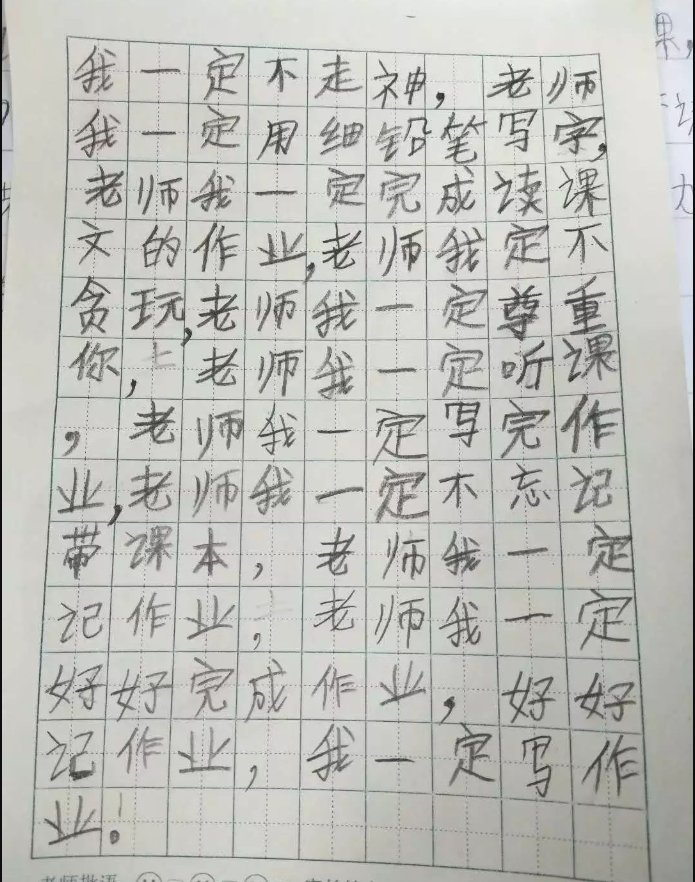 我一定不走神,老师
我一定用细铅笔写字,
老师我一定完成读课
文的作业,老师我定不
贪玩,老师我一定尊重
你,老师我一定听课
,老师我一定写完作
业,老师我一定不忘记
带课本,老师我一定
记作业,老师我一定
好好完成作业,好好
记作业,我一定写作
业。
老师批语